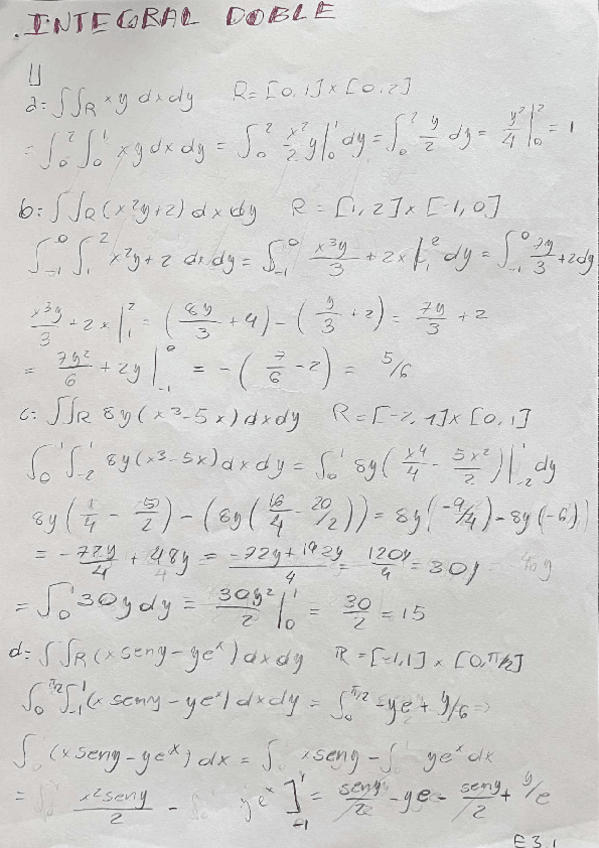 . INTEGRAL DOBLE
1)
a: ∫∫R xy dxdy R=[0,1]x[0,2]
= ∫₀² ∫₀¹ xy dx dy = ∫₀² x²/2 y|₀¹ dy = ∫₀² y/2 dy = y²/4|₀² = 1
b: ∫∫R(x²y+2)dxdy R=[1,2]x[-1,0]
∫₋₁⁰ ∫₁² x²y+2 dxdy = ∫₋₁⁰ x³y/3 + 2x|₁² dy = ∫₋₁⁰ 7y/3 + 2dy
x³y/3 + 2x|₁² = (8y/3 + 4) - (y/3 + 2) = 7y/3 + 2
= 7y²/6 + 2y|₋₁⁰ = -(7/6 - 2) = 5/6
c: ∫∫R 8y(x³-5x)dxdy R=[-2,1]x[0,1]
∫₀¹ ∫₋₂¹ 8y(x³-5x)dxdy = ∫₀¹ 8y(x⁴/4 - 5x²/2)|₋₂¹ dy
8y(1/4 - 5/2) - (8y(16/4 - 20/2)) = 8y(-9/4) - 8y(-6)
= -72y/4 + 48y = -72y+192y/4 = 120y/4 = 30y
= ∫₀¹ 30y dy = 30y²/2|₀¹ = 30/2 = 15
d: ∫∫R(x seny - yeˣ)dxdy R=[-1,1]x[0,π/2]
∫₀^π/2 ∫₋₁¹(x seny - yeˣ)dxdy = ∫₀^π/2 -ye + y/e =>
∫(x seny - yeˣ)dx = ∫ x seny - ∫ yeˣ dx
= x²seny/2 - yeˣ]₋₁¹ = seny/2 - ye - seny/2 + y/e
E3.1